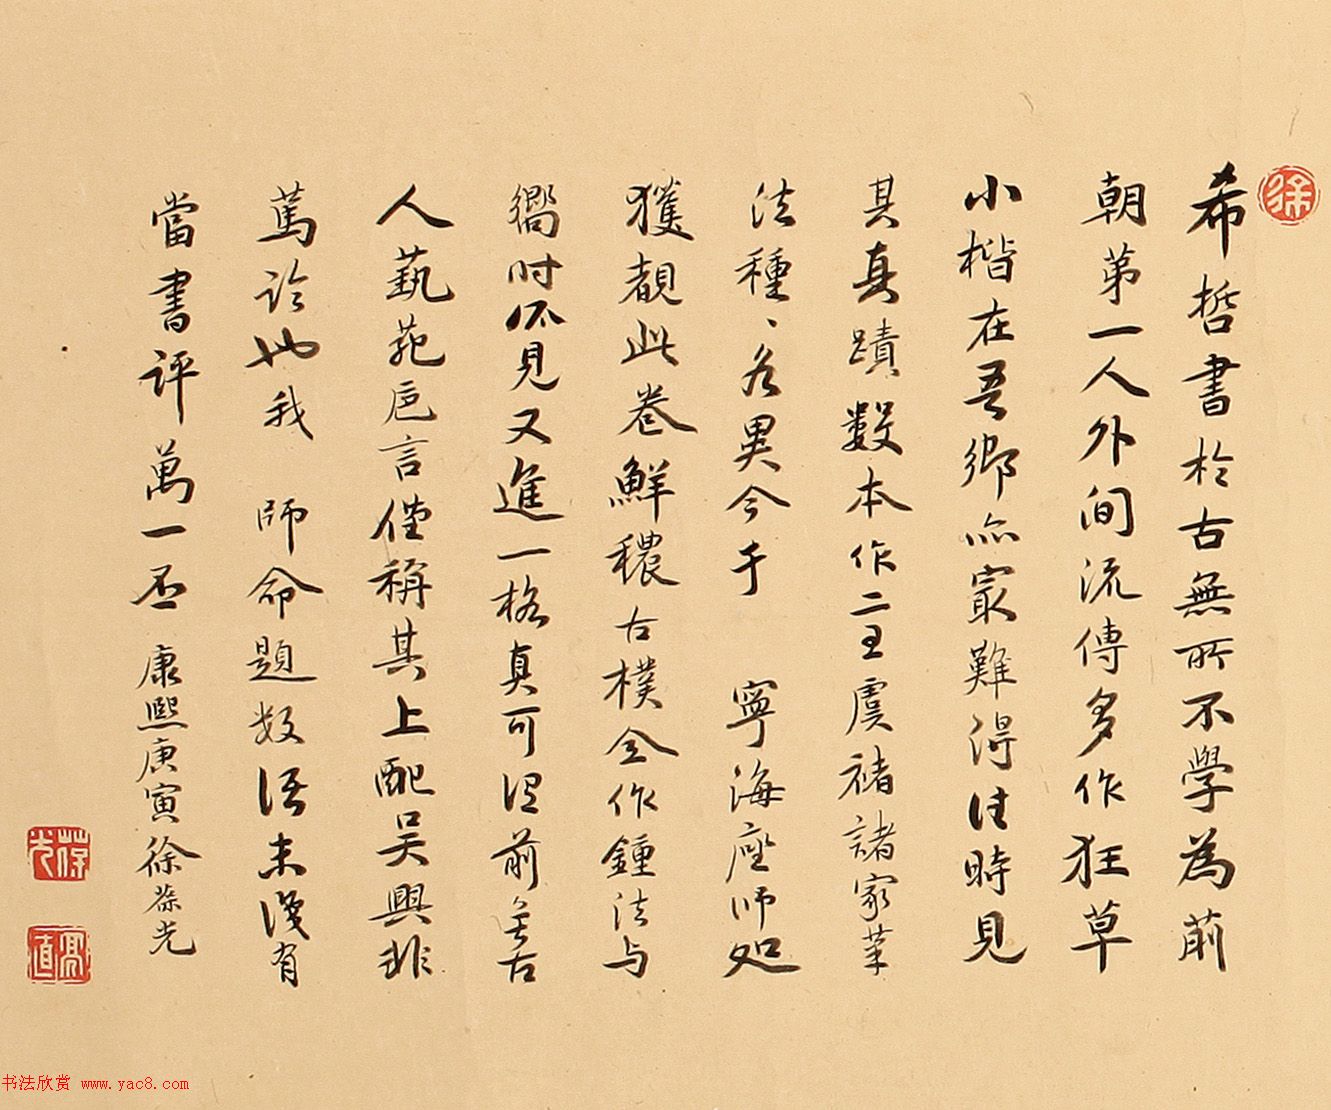 希哲書於古無所不學為前
朝第一人外間流傳多作狂草
小楷在吾鄉亦寂難得往時見
其真蹟數本作二王虞褚諸家筆
法種〻各異今于 寧海座師処
獲覩此卷鮮穠古樸全作鍾法与
嚮时所見又進一格真可谓前無古
人藝苑巵言僅稱其上配吴興非
篤论也我 師命題数语未識有
當書評萬一否 康熙庚寅徐葆光
徐
葆光
亮直
书法欣赏 www.yac8.com